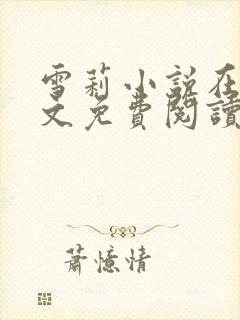 雪莉小說在
文免費閱讀
蕭憶情